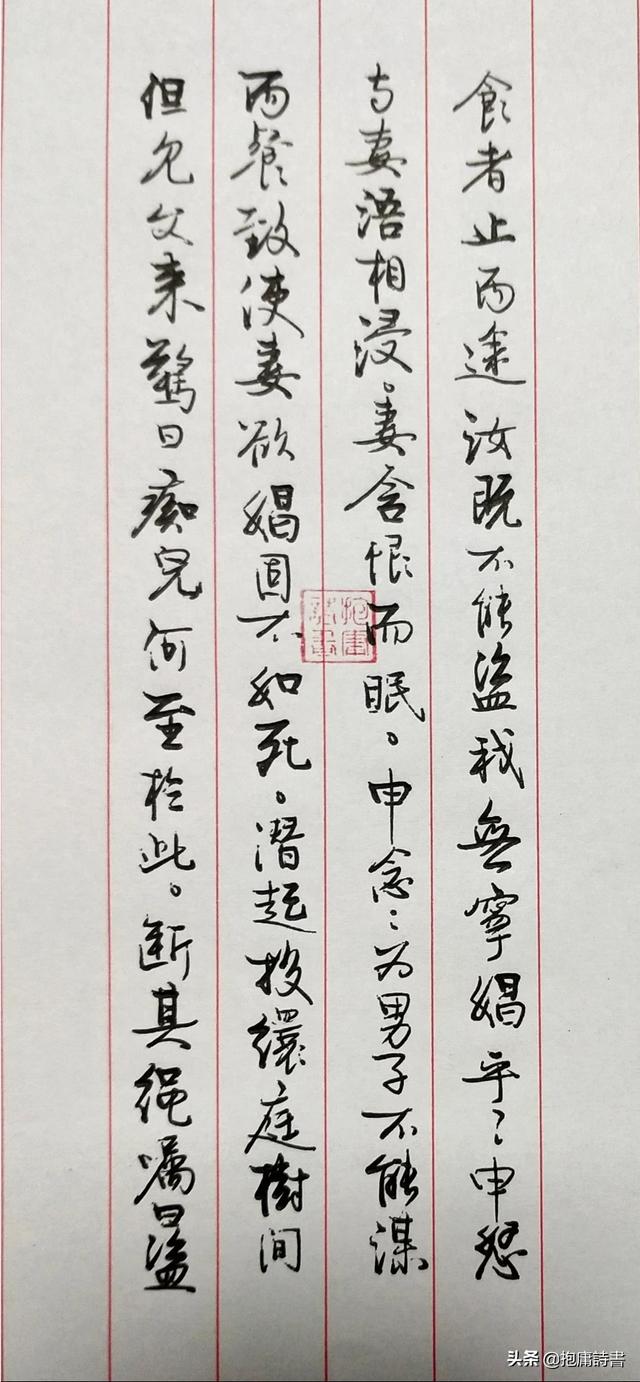 食者止两途汝既不能盗我無寧娼乎：申怒
与妻语相浸。妻含恨而眠。申念：为男子不能謀
两餐致使妻欲娼固不如死。潛起投繯庭樹间
但见父来驚曰痴兒何至於此。断其绳嘱曰盗
抱庸詩書
头条 @抱庸詩書